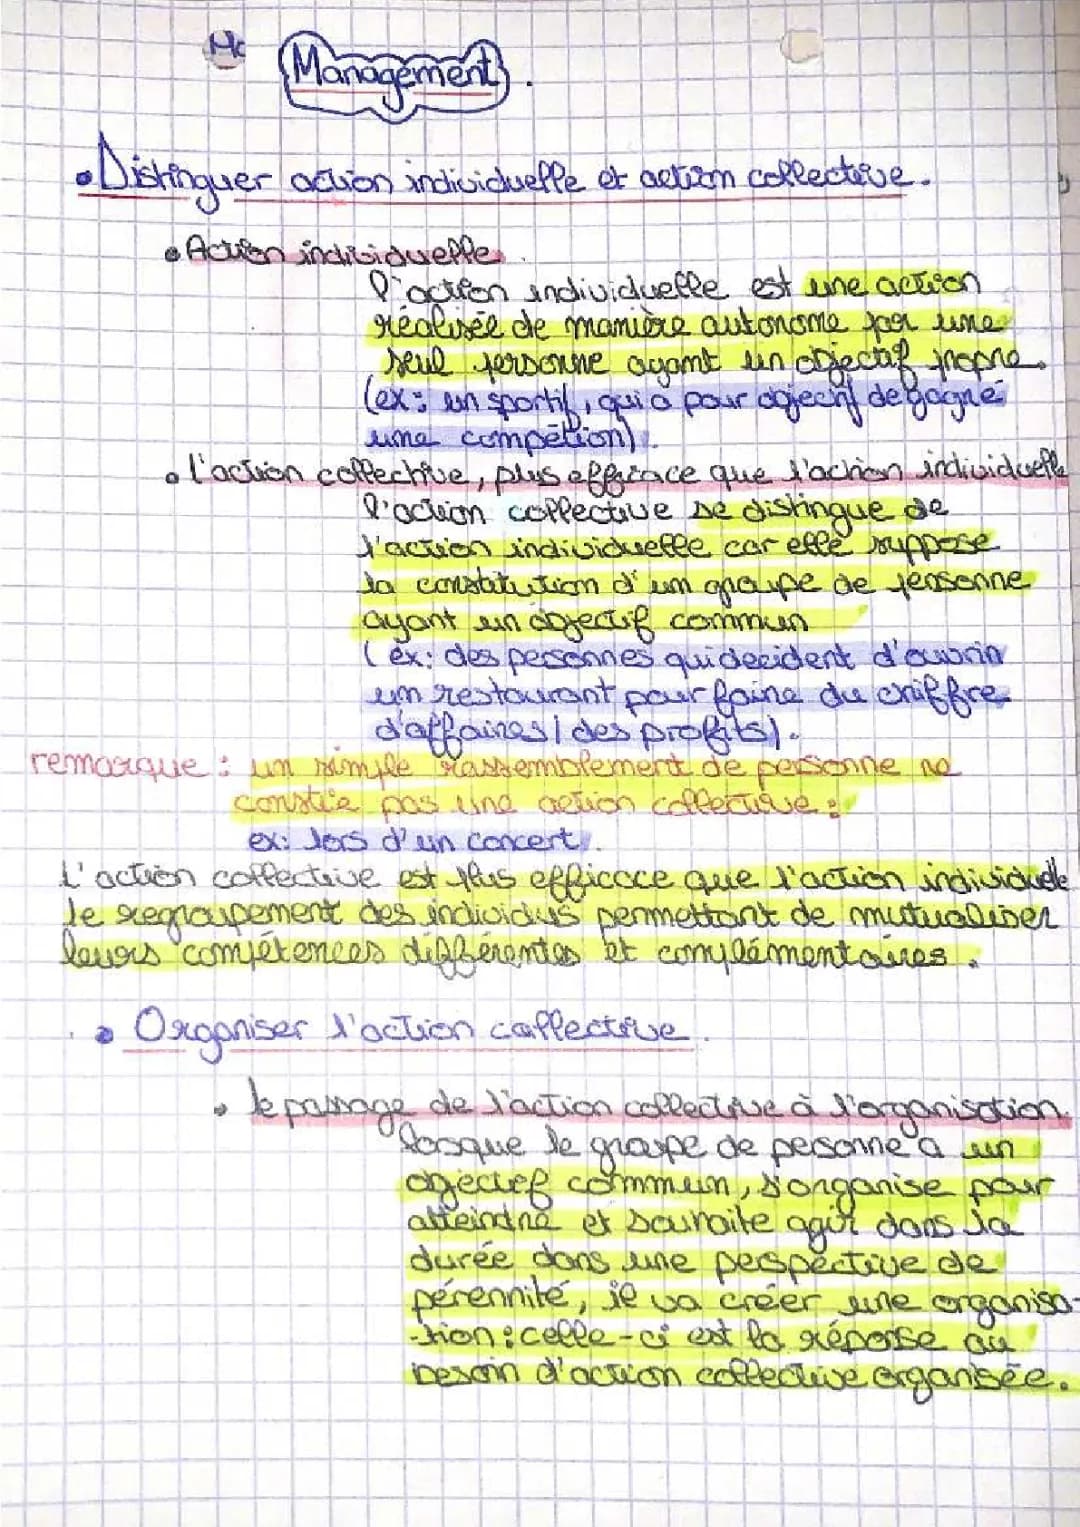 Mc
Management.
• Distinguer action individuelle et action collective.
• Action individuelle.
l'action individuelle est une action
réalisée de manière autonome par une
seul personne ayant un objectif propre.
(ex: un sportif, qui a pour objectif de gagné
une compétion).
• l'action collective, plus efficace que l'action individuelle
l'action collective se distingue de
l'action individuelle car elle suppose
la constitution d'un groupe de personne
ayant un objectif commun
(ex: des personnes qui decident d'ouvrir
un restaurant pour faire du chiffre
d'affaires / des profits).
remarque: un simple rassemblement de personne ne
constie pas une action collective:
ex: lors d'un concert.
L'action collective est plus efficace que l'action individuelle
le regroupement des individus permettant de mutualiser
leurs compétences différentes et complémentaires.
• Organiser l'action collective.
• le passage de l'action collective à l'organisation.
losque le groupe de personne a un
objectif commun, s'organise pour
atteindre et souhaite agir dans la
durée dans une perspective de
pérennité, il va créer une organisa-
-tion: celle-ci est la réponse au
besoin d'action collective organisée.